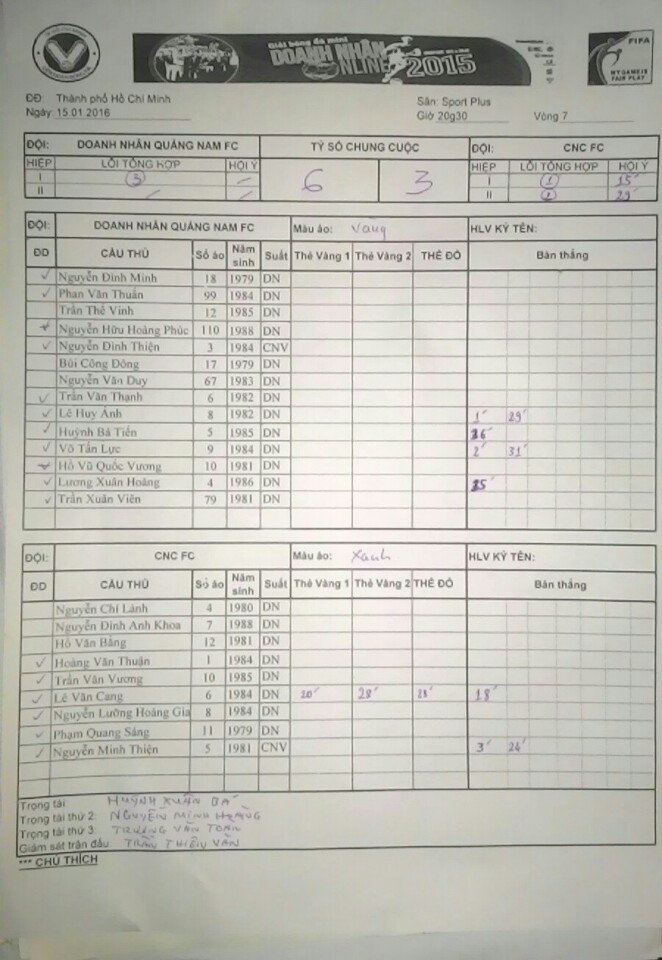 Giải bóng đá mini
DOANH NHÂN
ONLINE 2015
FIFA
MY GAME IS
FAIR PLAY
ĐĐ: Thành phố Hồ Chí Minh
Sân: Sport Plus
Ngày: 15.01.2016 Giờ 20g30 Vòng 7
ĐỘI: DOANH NHÂN QUẢNG NAM FC TỶ SỐ CHUNG CUỘC ĐỘI: CNC FC
HIỆP LỖI TỔNG HỢP HỘI Ý 6 3 HIỆP LỖI TỔNG HỢP HỘI Ý
I 3 / I 1 15'
II / / II 1 29'
ĐỘI: DOANH NHÂN QUẢNG NAM FC Màu áo: Vàng HLV KÝ TÊN:
ĐD CẦU THỦ Số áo Năm sinh Suất Thẻ Vàng 1 Thẻ Vàng 2 THẺ ĐỎ Bàn thắng
✓ Nguyễn Đình Minh 18 1979 DN
✓ Phan Văn Thuấn 99 1984 DN
Trần Thế Vinh 12 1985 DN
Nguyễn Hữu Hoàng Phúc 110 1988 DN
✓ Nguyễn Đình Thiện 3 1984 CNV
Bùi Công Đông 17 1979 DN
Nguyễn Văn Duy 67 1983 DN
✓ Trần Văn Thạnh 6 1982 DN
✓ Lê Huy Ánh 8 1982 DN 1' 29'
✓ Huỳnh Bá Tiến 5 1985 DN 16'
✓ Võ Tấn Lực 9 1984 DN 2' 31'
Hồ Vũ Quốc Vương 10 1981 DN
✓ Lương Xuân Hoàng 4 1986 DN 15'
✓ Trần Xuân Viên 79 1981 DN
ĐỘI: CNC FC Màu áo: Xanh HLV KÝ TÊN:
ĐD CẦU THỦ Số áo Năm sinh Suất Thẻ Vàng 1 Thẻ Vàng 2 THẺ ĐỎ Bàn thắng
Nguyễn Chí Lành 4 1980 DN
Nguyễn Đình Anh Khoa 7 1988 DN
Hồ Văn Bằng 12 1981 DN
✓ Hoàng Văn Thuận 1 1984 DN
✓ Trần Văn Vương 10 1985 DN
✓ Lê Văn Cang 6 1984 DN 20' 28' 28' 18'
✓ Nguyễn Lưỡng Hoàng Gia 8 1984 DN
✓ Phạm Quang Sáng 11 1979 DN
✓ Nguyễn Minh Thiện 5 1981 CNV 3' 24'
Trọng tài HUỲNH XUÂN BÁ
Trọng tài thứ 2: NGUYỄN MINH HOÀNG
Trọng tài thứ 3: TRƯƠNG VĂN TOÀN
Giám sát trận đấu: TRẦN THIÊN VĂN
*** CHÚ THÍCH